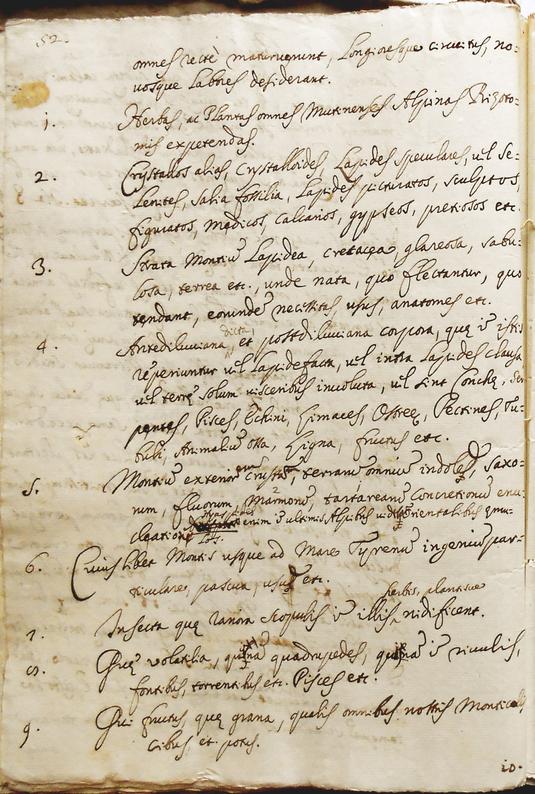 52.
omnes recte maturuerunt, Longioresque circuitus, no=
uosque Labores desiderant.
1. Herbas, ac Plantas omnes Mutinenses Alpinas Rizoto=
mis expetendas.
2. Crystallos alias, Crystalloides, Lapides speculares, vel Se=
lenites, Salia fossilia, Lapides picturatos, sculptos,
figuratos, medicos, calcarios, gypseos, pretiosos etc.
3. Strata Montiū Lapidea, cretacea, glareosa, sabu=
losa, terrea etc., unde nata, quo flectantur, quo
tendant, eorundē necessitas, usus, anatomes etc.
4. Antediluviana dicta, et postdiluviana corpora, quę ī istis
reperiuntur vel lapidefacta, vel intra Lapides clausa
vel terrę solum visceribus involuta, vel sint Conchę, Ser
pentes, Pisces, Echini, Limaces, Ostreę, Pectines, Tu=
buli, Animaliū ossa, Ligna, fructus etc.
5. Montiū externorum crustas, terrarū omniū indoles, saxo=
rum, fluorum, Marmorū, tartarearū Concretionū enu=
cleationes enim ī ultimis Alpibus Orientalibus
6. Cuiuslibet Montis usque ad Mare Tyrrenū ingeniū par=
ticulares, pascua, usus etc.
herbis, plantisue
7. Insecta quę rariora scopulis ī illis nidificent.
8. Quę volatilia, quęnā quadrupedes, quęnā ī rivulis,
fontibus, torrentibus etc. Pisces etc.
9. Qui fructus, quę grana, qualis omnibus nostris Monticolis
cibus et potus.
10.